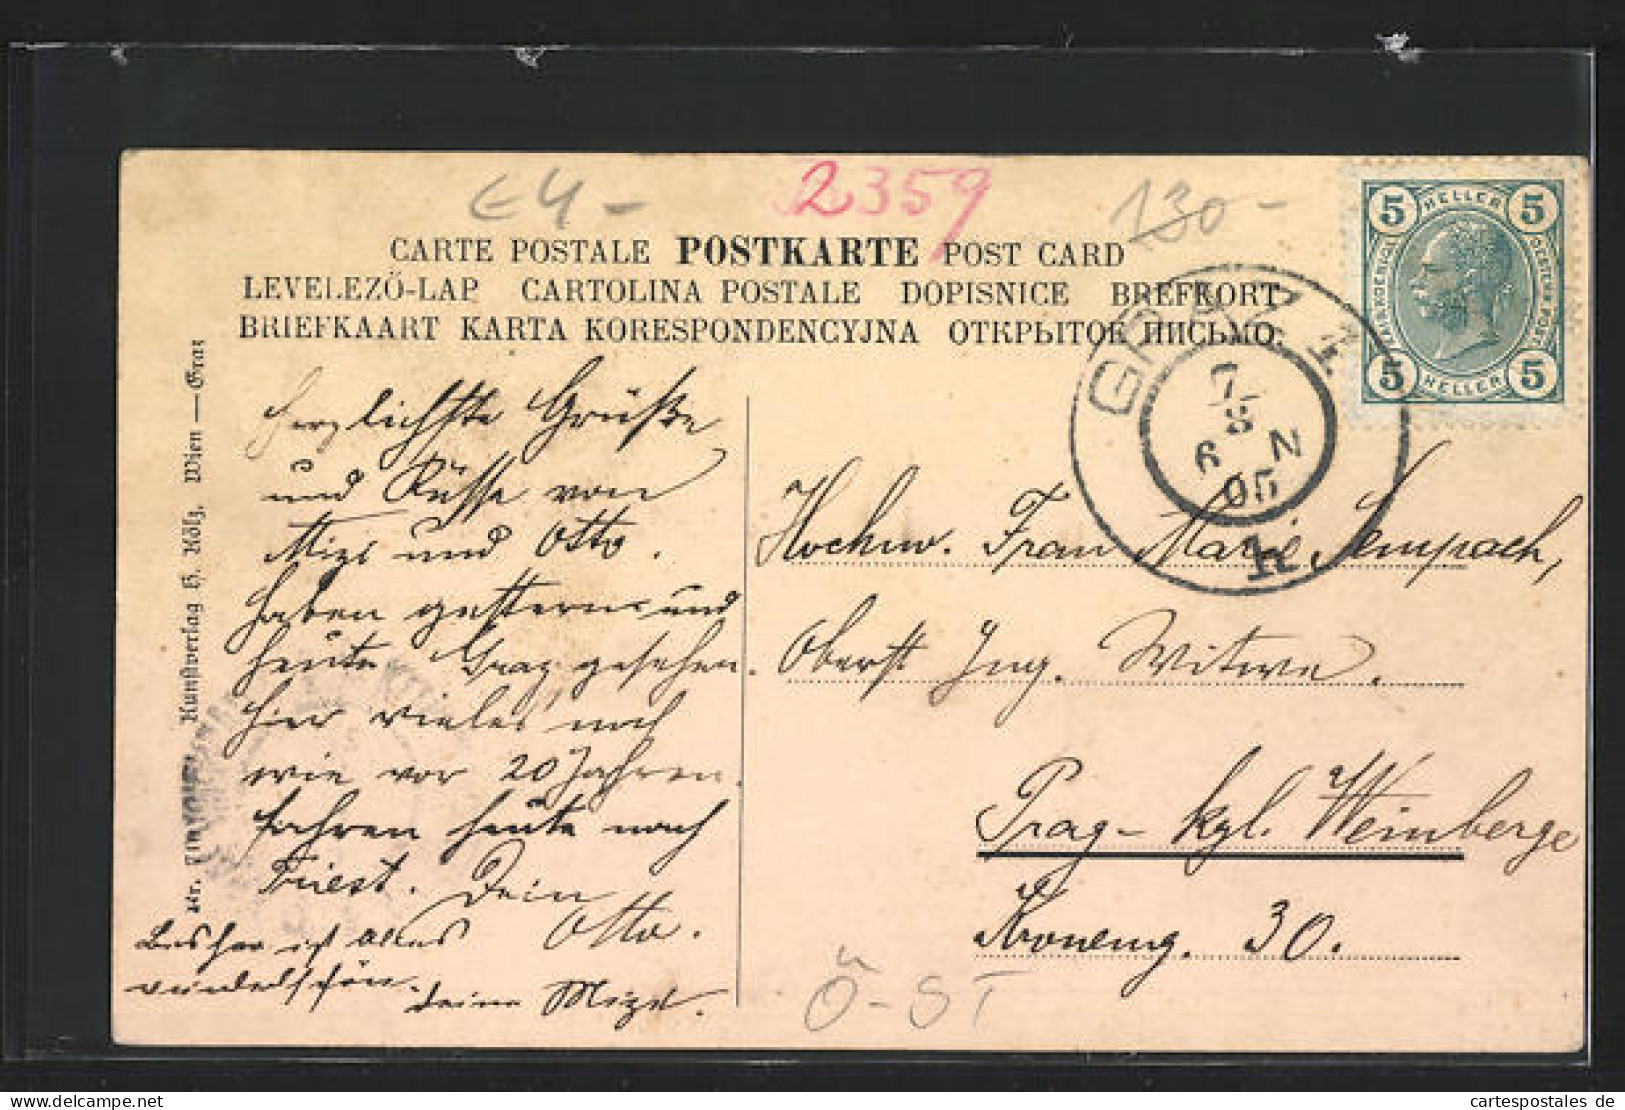 € 4 -
2359
130 -
CARTE POSTALE POSTKARTE POST CARD
LEVELEZŐ-LAP CARTOLINA POSTALE DOPISNICE BREFKORT
BRIEFKAART KARTA KORESPONDENCYJNA ОТКРЫТОЕ ПИСЬМО.
5 HELLER 5
KAIS. KOENIGL. OESTERR. POST
5 HELLER 5
GRAZ 1
7
8
6 N
05
k
Kunstverlag H. Kölz, Wien—Graz
Nr.
Herzlichste Grüße
und Küsse von
Mizi und Otto.
Haben gestern und
heute Graz gesehen.
Hier vieles noch
wie vor 20 Jahren.
fahren heute nach
Triest. Dein
Otto.
Bisher ist alles
wunderschön.
deine Mizi.
Hochw. Frau Marie Sempach,
Oberst Ing. Witwe.
Prag - kgl. Weinberge
Kroneng. 30.
Ö-ST
www.cartespostales.de
cartespostales de